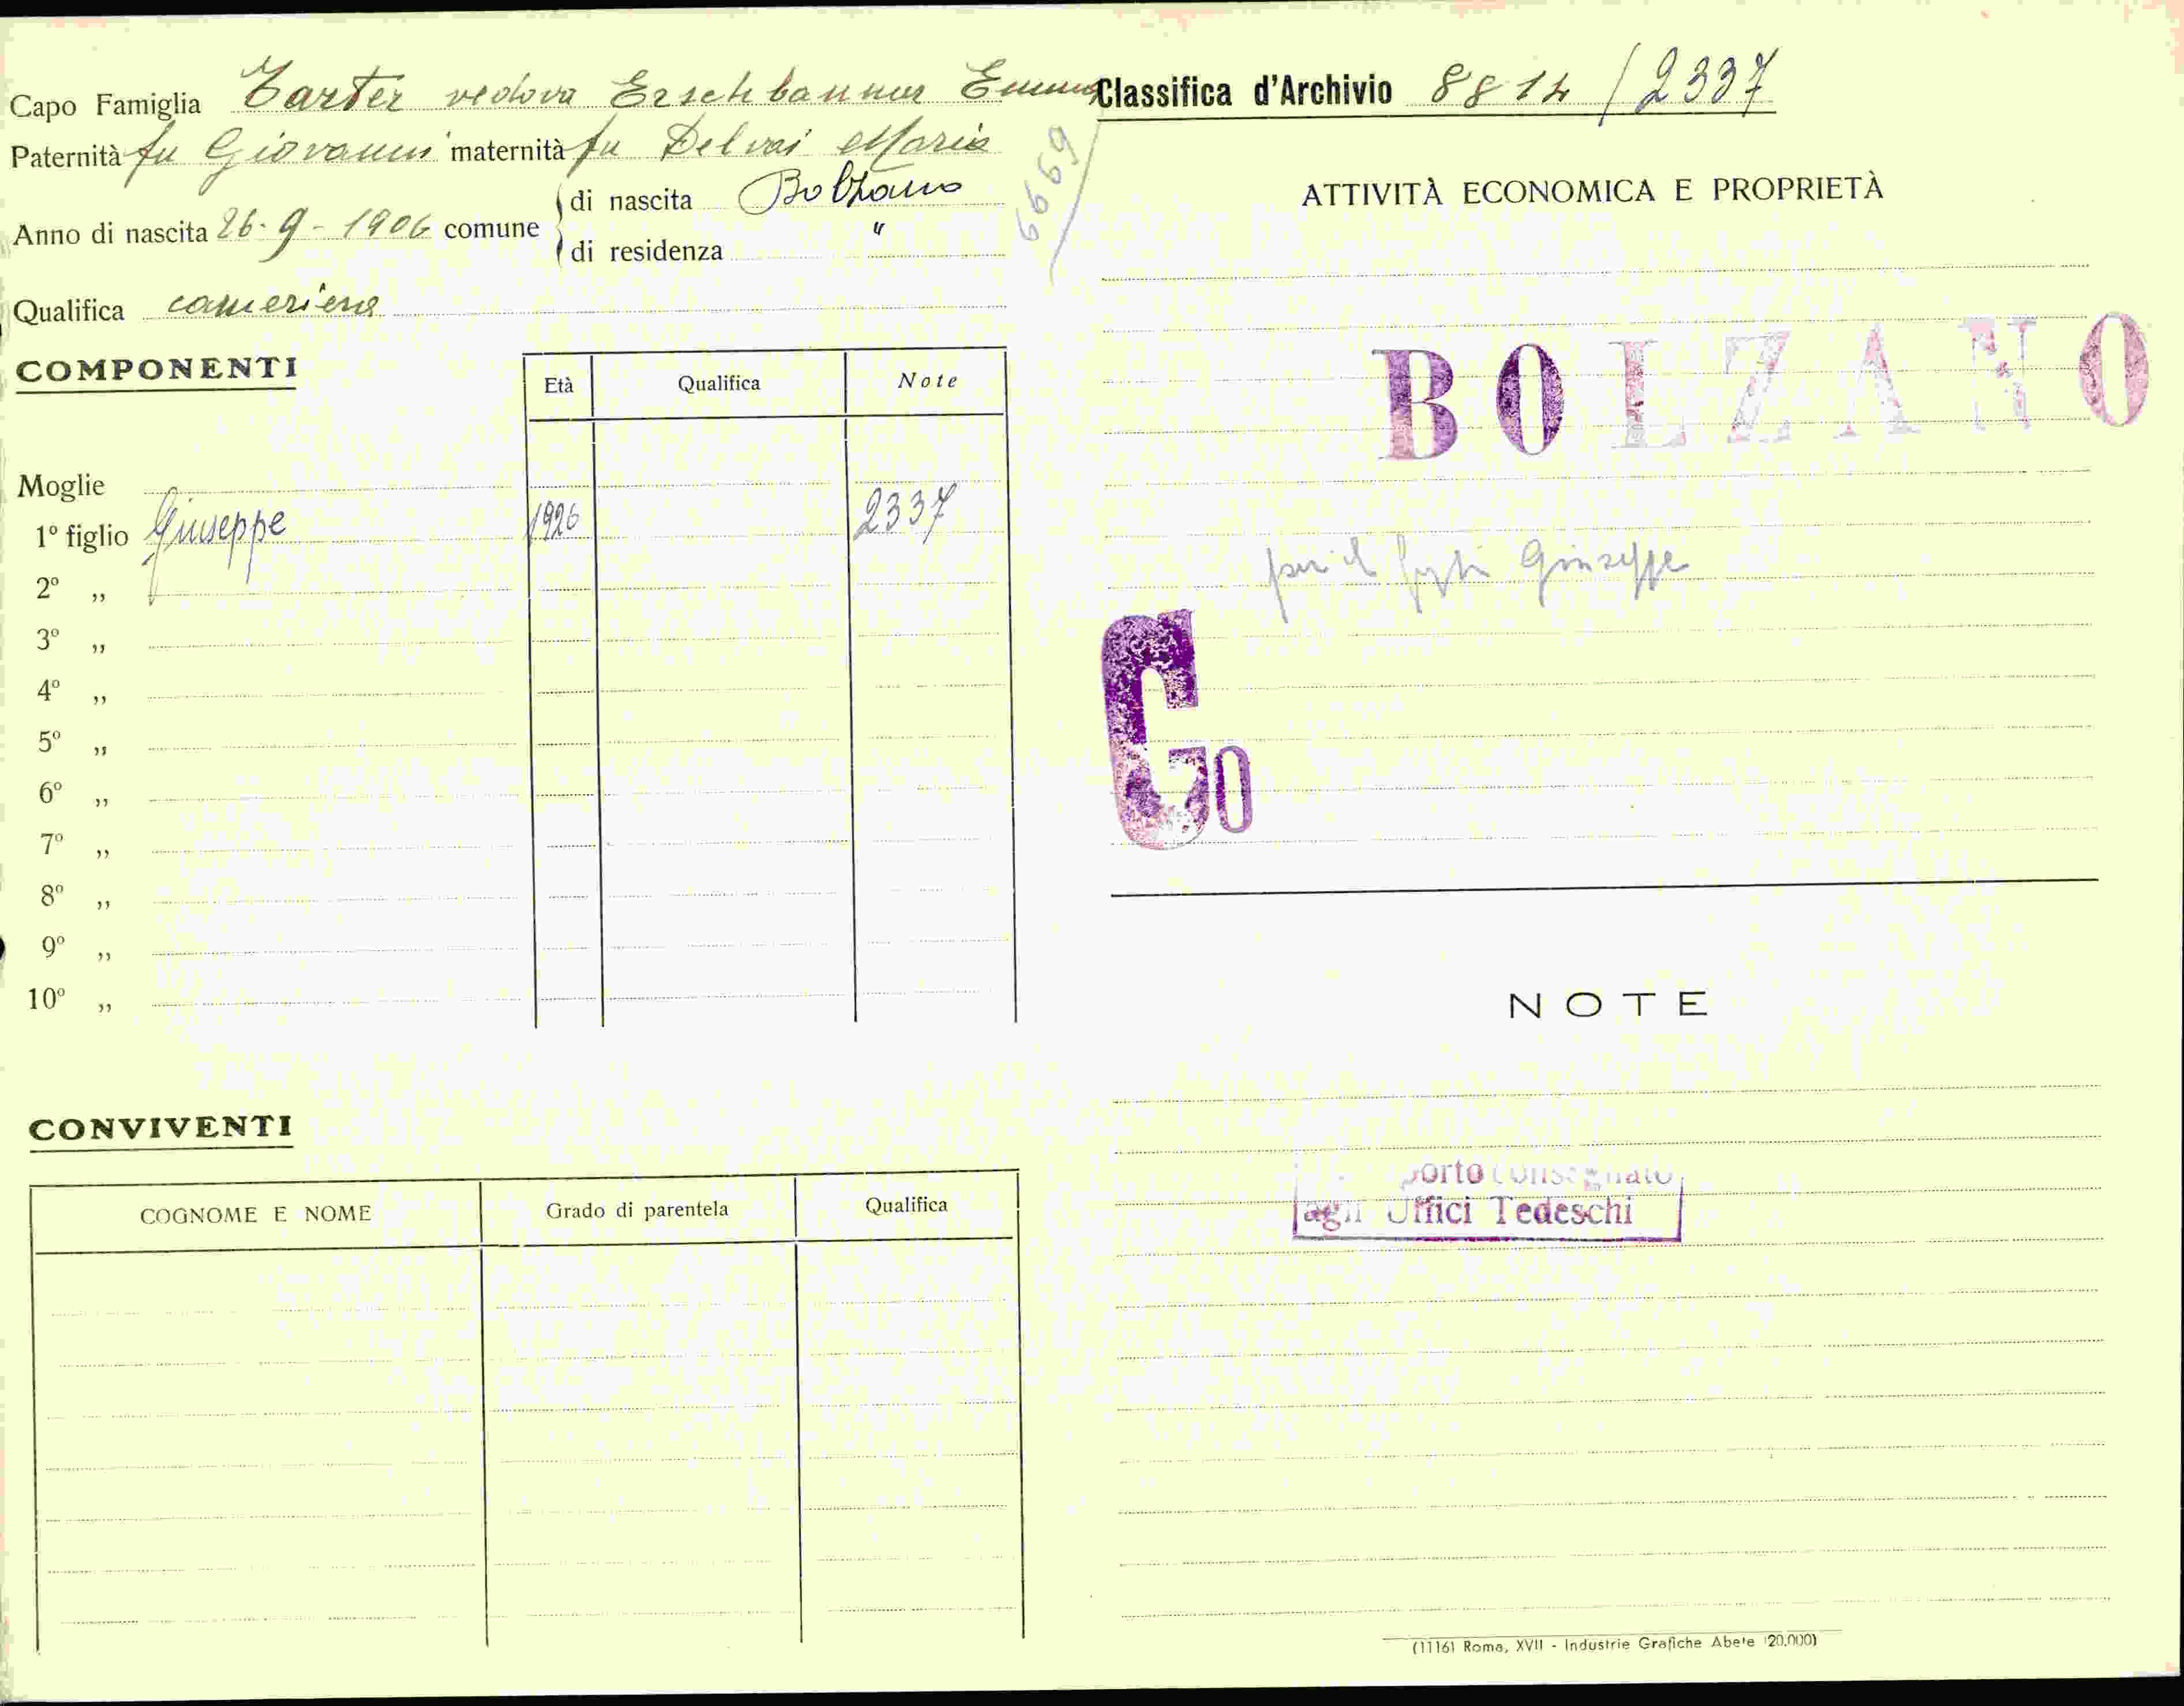 Capo Famiglia Tarter vedova Erschbaumer Emma
Paternità fu Giovanni maternità fu Delvai Maria
Anno di nascita 26-9-1906 comune
di nascita Bolzano
di residenza "
Qualifica cameriera
COMPONENTI
Età Qualifica Note
Moglie
1º figlio Giuseppe 1926 2337
2º „
3º „
4º „
5º „
6º „
7º „
8º „
9º „
10º „
CONVIVENTI
COGNOME E NOME Grado di parentela Qualifica
6669
Classifica d'Archivio 8814 / 2337
ATTIVITÀ ECONOMICA E PROPRIETÀ
BOLZANO
per il figlio Giuseppe
Go
NOTE
porto consegnato
agli Uffici Tedeschi
(1116) Roma, XVII - Industrie Grafiche Abete (20.000)